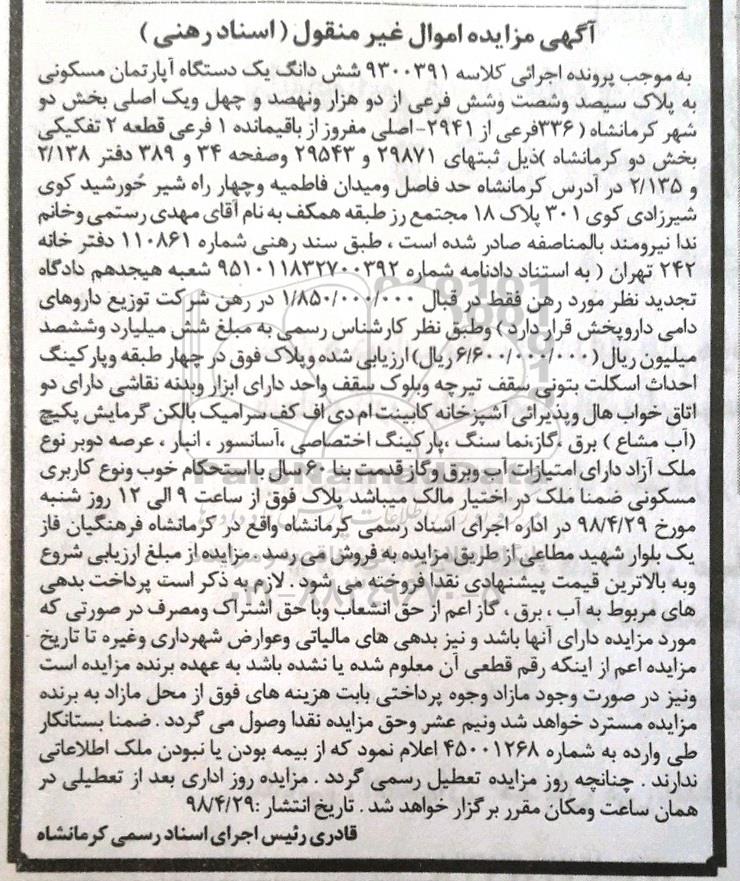 آگهی مزایده اموال غیر منقول ( اسناد رهنی )
به موجب پرونده اجرائی کلاسه ۹۳۰۰۳۹۱ شش دانگ یک دستگاه آپارتمان مسکونی
به پلاک سیصد وشصت وشش فرعی از دو هزار ونهصد و چهل ویک اصلی بخش دو
شهر کرمانشاه ( ۳۳۶فرعی از ۲۹۴۱-اصلی مفروز از باقیمانده ۱ فرعی قطعه ۲ تفکیکی
بخش دو کرمانشاه )ذیل ثبتهای ۲۹۸۷۱ و ۲۹۵۴۳ وصفحه ۳۴ و ۳۸۹ دفتر ۲/۱۳۸
و ۲/۱۳۵ در آدرس کرمانشاه حد فاصل ومیدان فاطمیه وچهار راه شیر خورشید کوی
شیرزادی کوی ۳۰۱ پلاک ۱۸ مجتمع رز طبقه همکف به نام آقای مهدی رستمی وخانم
ندا نیرومند بالمناصفه صادر شده است ، طبق سند رهنی شماره ۱۱۰۸۶۱ دفتر خانه
۲۴۲ تهران ( به استناد دادنامه شماره ۹۵۱۰۱۱۸۳۲۷۰۰۳۹۲ شعبه هیجدهم دادگاه
تجدید نظر مورد رهن فقط در قبال ۱/۸۵۰/۰۰۰/۰۰۰ در رهن شرکت توزیع داروهای
دامی داروپخش قرار دارد ) وطبق نظر کارشناس رسمی به مبلغ شش میلیارد وششصد
میلیون ریال ( ۶/۶۰۰/۰۰۰/۰۰۰ ریال) ارزیابی شده وپلاک فوق در چهار طبقه وپارکینگ
احداث اسکلت بتونی سقف تیرچه وبلوک سقف واحد دارای ابزار وبدنه نقاشی دارای دو
اتاق خواب هال وپذیرائی آشپزخانه کابینت ام دی اف کف سرامیک بالکن گرمایش پکیج
(آب مشاع ) برق ،گاز،نما سنگ ،پارکینگ اختصاصی ،آسانسور ، انبار ، عرصه دوبر نوع
ملک آزاد دارای امتیازات آب وبرق وگاز قدمت بنا ۶۰ سال با استحکام خوب ونوع کاربری
مسکونی ضمنا ملک در اختیار مالک میباشد پلاک فوق از ساعت ۹ الی ۱۲ روز شنبه
مورخ ۹۸/۴/۲۹ در اداره اجرای اسناد رسمی کرمانشاه واقع در کرمانشاه فرهنگیان فاز
یک بلوار شهید مطاعی از طریق مزایده به فروش می رسد . مزایده از مبلغ ارزیابی شروع
وبه بالاترین قیمت پیشنهادی نقدا فروخته می شود . لازم به ذکر است پرداخت بدهی
های مربوط به آب ، برق ، گاز اعم از حق انشعاب ویا حق اشتراک ومصرف در صورتی که
مورد مزایده دارای آنها باشد و نیز بدهی های مالیاتی وعوارض شهرداری وغیره تا تاریخ
مزایده اعم از اینکه رقم قطعی آن معلوم شده یا نشده باشد به عهده برنده مزایده است
ونیز در صورت وجود مازاد وجوه پرداختی بابت هزینه های فوق از محل مازاد به برنده
مزایده مسترد خواهد شد ونیم عشر وحق مزایده نقدا وصول می گردد . ضمنا بستانکار
طی وارده به شماره ۴۵۰۰۱۲۶۸ اعلام نمود که از بیمه بودن یا نبودن ملک اطلاعاتی
ندارند . چنانچه روز مزایده تعطیل رسمی گردد . مزایده روز اداری بعد از تعطیلی در
همان ساعت ومکان مقرر برگزار خواهد شد . تاریخ انتشار :۹۸/۴/۲۹
قادری رئیس اجرای اسناد رسمی کرمانشاه
ParsNamadData